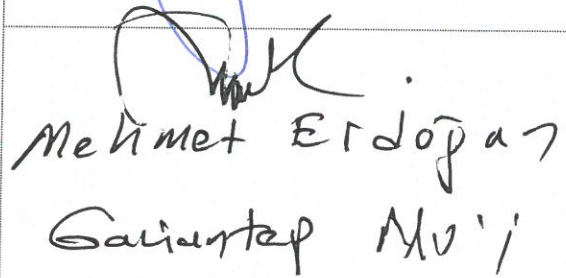 Mehmet Erdoğan
Gaziantep